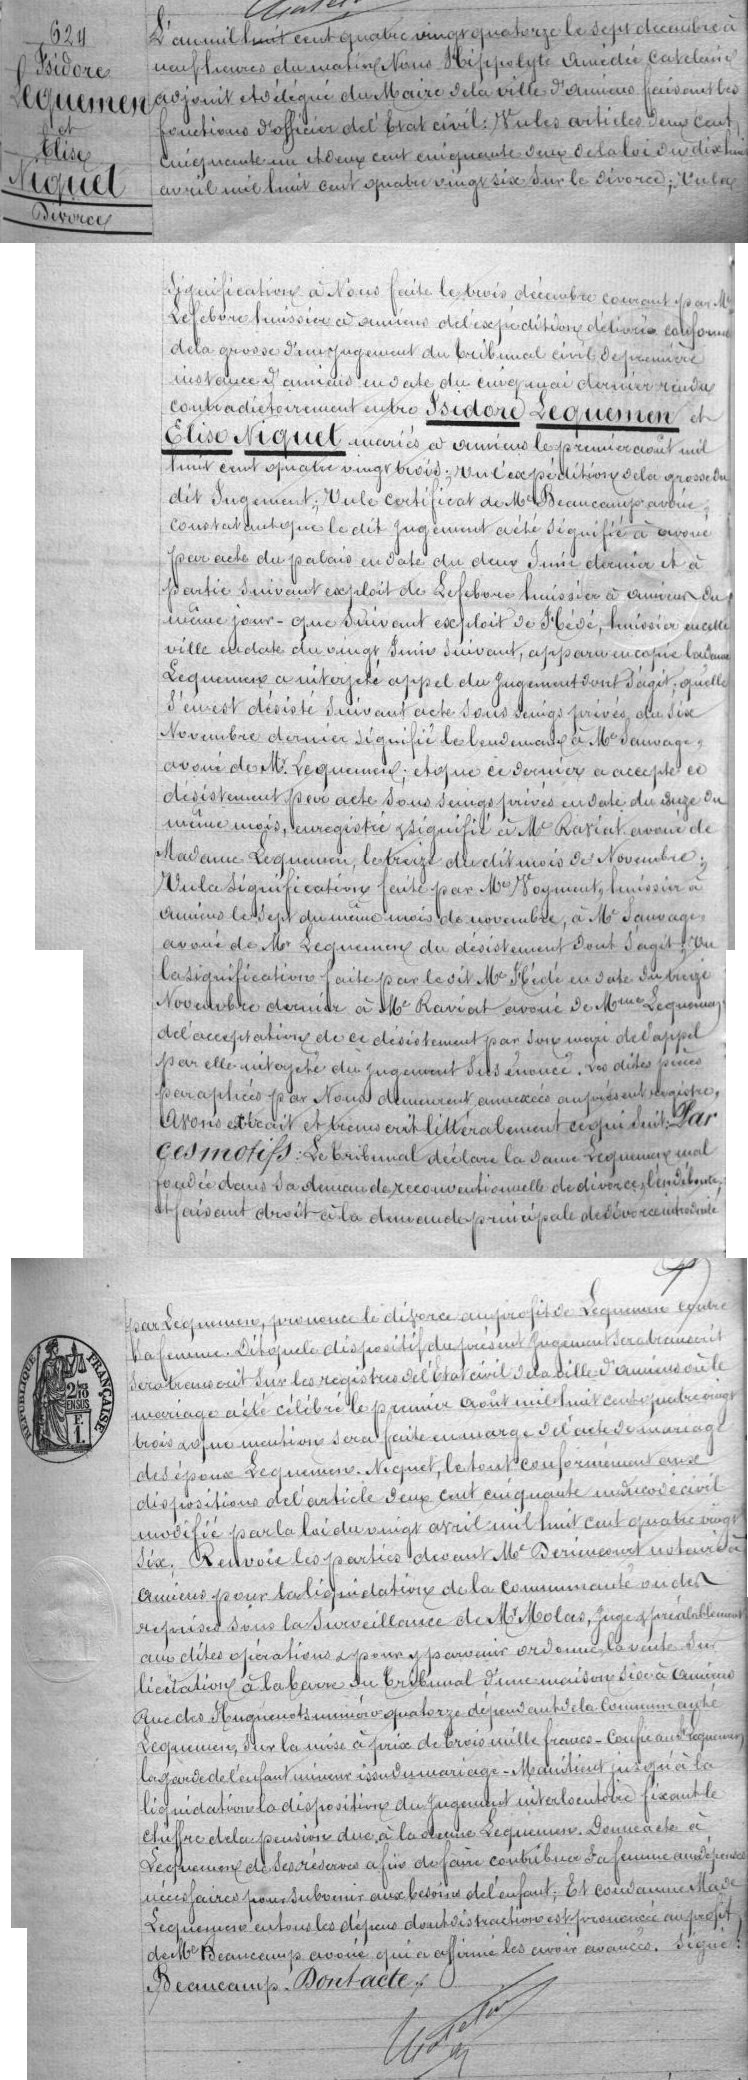 624
Isidore
Lequemen
et
Elise
Niquet
Divorce
L'an mil huit cent quatre vingt quatorze le sept decembre à
neuf heures du matin Nous Hippolyte Amédée Catelain
adjoint et délégué du Maire de la ville d'Amiens faisant les
fonctions d'officier de l'Etat civil: Vu les articles deux cent
cinquante un et deux cent cinquante deux de la loi du dix huit
avril mil huit cent quatre vingt six sur le divorce; Vu la
signification à Nous faite le trois décembre courant par Me
Lefebvre huissier à Amiens de l'expédition délivrée conforme
de la grosse d'un jugement du Tribunal civil de première
instance d'Amiens en date du cinq mai dernier rendu
contradictoirement entre Isidore Lequemen et
Elise Niquet mariés à Amiens le premier août mil
huit cent quatre vingt trois; Vu l'expédition de la grosse du
dit Jugement; Vu le certificat de Me Beaucamp avoué,
constatant que le dit jugement a été signifié à avoué
par acte du palais en date du deux Juin dernier et à
partie suivant exploit de Lefebvre huissier à Amiens du
même jour - que suivant exploit de Hédé, huissier en cette
ville en date du vingt Juin suivant, apparu en copie la dame
Lequemen a interjeté appel du jugement dont s'agit; qu'elle
s'en est désisté suivant acte sous seings privés du six
Novembre dernier signifié le lendemain à Me Sauvage,
avoué de Mr Lequemen; et que ce dernier a accepté ce
désistement par acte sous seings privés en date du onze du
même mois, enregistré & signifié à Me Raviat avoué de
Madame Lequemen, le treize du dit mois de Novembre;
Vu la signification faite par Me Voyment, huissier à
Amiens le sept du même mois de novembre, à Me Sauvage,
avoué de Mr Lequemen du désistement dont s'agit; Vu
la signification faite par le dit Me Hédé en date du treize
Novembre dernier à Me Raviat avoué de Mme Lequemen,
de l'acceptation de ce désistement par son mari de l'appel
par elle interjeté du jugement susénoncé. Les dites pièces
paraphées par Nous demeurent annexées au présent registre,
Avons extrait et transcrit littéralement ce qui suit: Par
ces motifs: Le Tribunal déclare la dame Lequemen mal
fondée dans sa demande reconventionnelle de divorce, l'en déboute;
Et faisant droit à la demande principale de divorce introduite
par Lequemen, prononce le divorce au profit de Lequemen contre
sa femme. Dit que le dispositif du présent Jugement sera transcrit
sera transcrit sur les registres de l'Etat civil de la ville d'Amiens où le
mariage a été célébré le premier Août mil huit cent quatre vingt
trois & que mention sera faite en marge de l'acte de mariage
des époux Lequemen-Niquet, le tout conformément aux
dispositions de l'article deux cent cinquante un du code civil
modifié par la loi du vingt avril mil huit cent quatre vingt
six. Renvoie les parties devant Me Deriencourt notaire à
Amiens pour la liquidation de la communauté ou des
reprises sous la surveillance de Mr Molas, Juge & préalablement
aux dites opérations & pour y parvenir ordonne la vente sur
licitation à la barre du Tribunal d'une maison sise à Amiens
Rue des Huguenots numéro quatorze dépendant de la Communauté
Lequemen, sur la mise à prix de trois mille francs - Confie au Sr Lequemen
la garde de l'enfant mineur issu du mariage - Maintient jusqu'à la
liquidation la disposition du Jugement interlocutoire fixant le
chiffre de la pension due à la dame Lequemen. Donne acte à
Lequemen de ses réserves afin de faire contribuer sa femme aux dépenses
nécessaires pour subvenir aux besoins de l'enfant; Et condamne Made
Lequemen en tous les dépens dont distraction est prononcée au profit
de Me Beaucamp avoué qui a affirmé les avoir avancés. Signé:
Beaucamp. Dont acte.
RÉPUBLIQUE FRANÇAISE